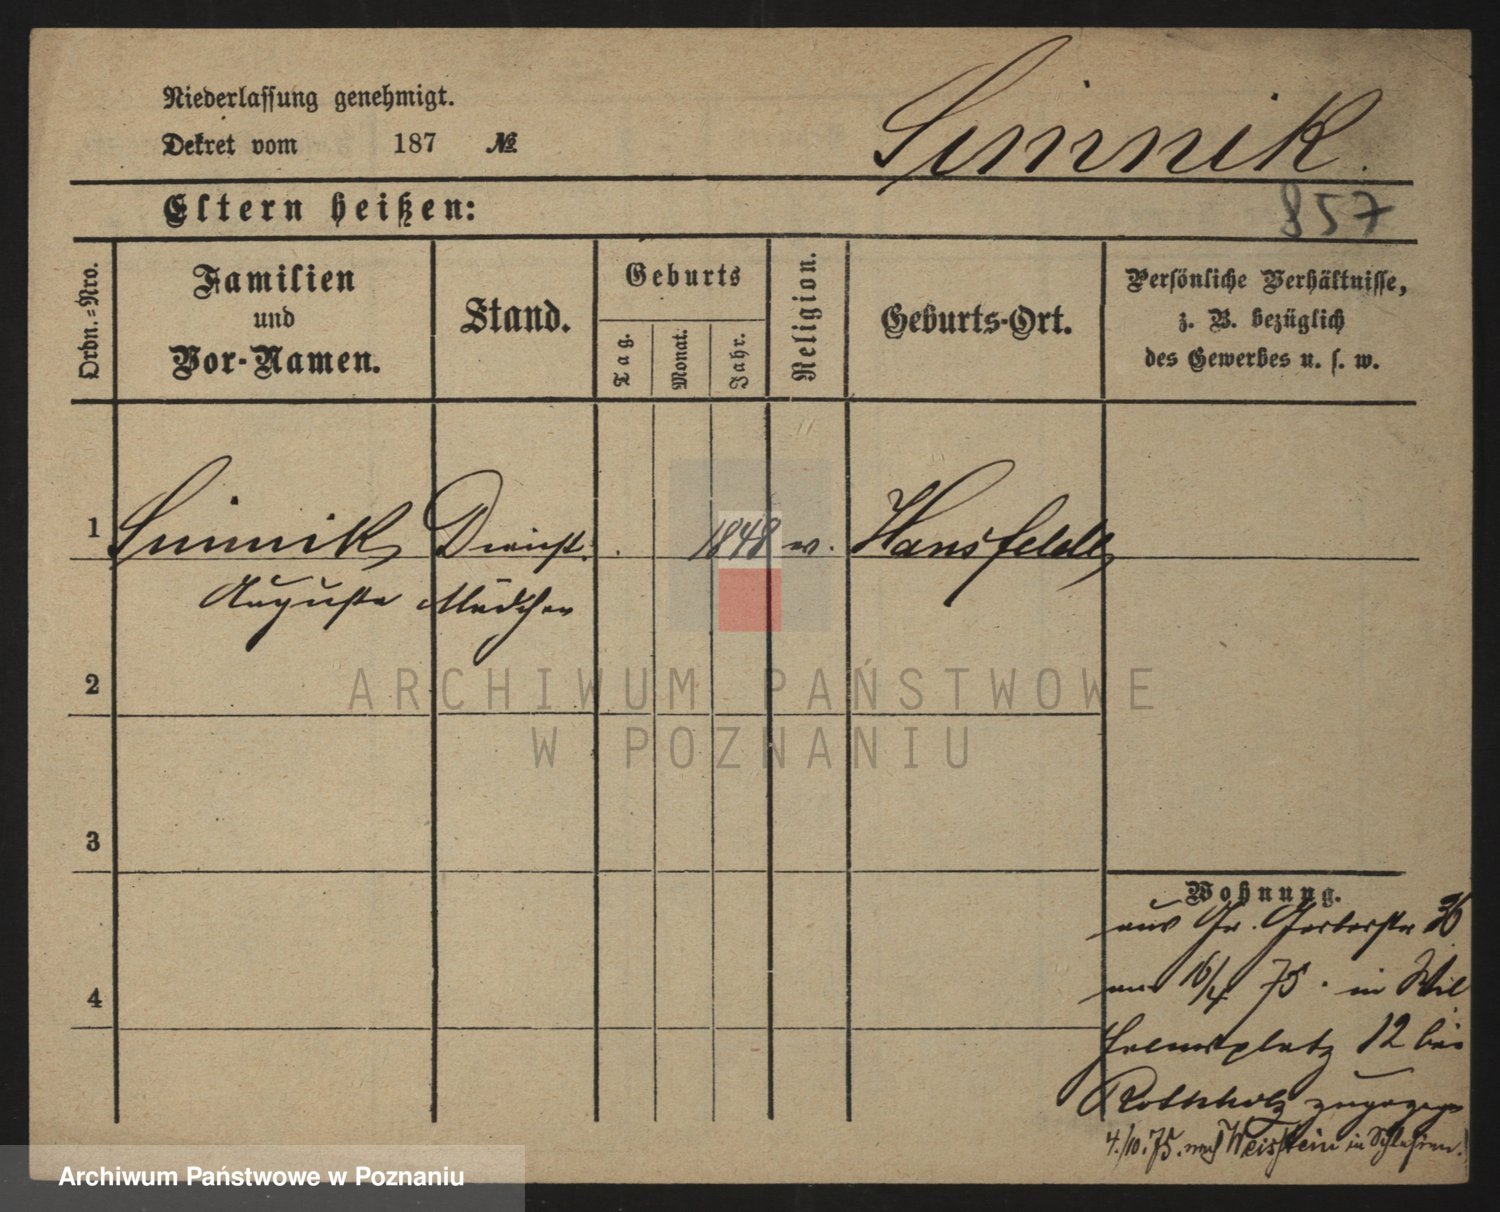 Niederlassung genehmigt.
Dekret vom 187 №
Simnik.
857
Eltern heißen:
Ordn.=Nro.
Familien
und
Vor-Namen.
Stand.
Geburts
Tag.
Monat.
Jahr.
Religion.
Geburts-Ort.
Persönliche Verhältnisse,
z. B. bezüglich
des Gewerbes u. s. w.
1 Simnik Dienst. 1848 w. Hansfelde
Auguste Mädchen
2
3
4
Wohnung.
aus Gr. Gerberstr 36
am 16/4 75. in Wil
helmsplatz 12 bei
Rothholz zugezogen
4./10.75. nach Weisstein in Schlesien.
ARCHIWUM PAŃSTWOWE
W POZNANIU
Archiwum Państwowe w Poznaniu